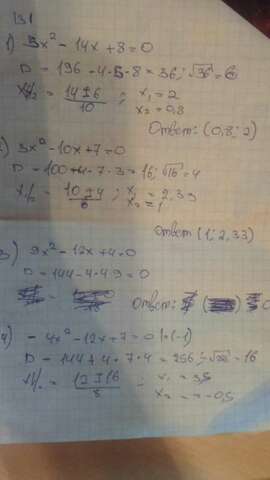 В1
1) 5x² - 14x + 8 = 0
D = 196 - 4·5·8 = 36; √36 = 6
x½ = 14±6/10 ; x₁ = 2
x₂ = 0,8
Ответ: (0,8; 2)
) 3x² - 10x + 7 = 0
D = 100 - 4·7·3 = 16; √16 = 4
x½ = 10±4/6 ; x₁ = 2,33
x₂ = 1
Ответ (1; 2,33)
3) 9x² - 12x + 4 = 0
D = 144 - 4·4·9 = 0
Ответ:
4) - 4x² - 12x + 7 = 0 |·(-1)
D = 144 + 4·7·4 = 256; = 16
x½ = 12±16/8 ; x₁ = 3,5
x₂ = -0,5